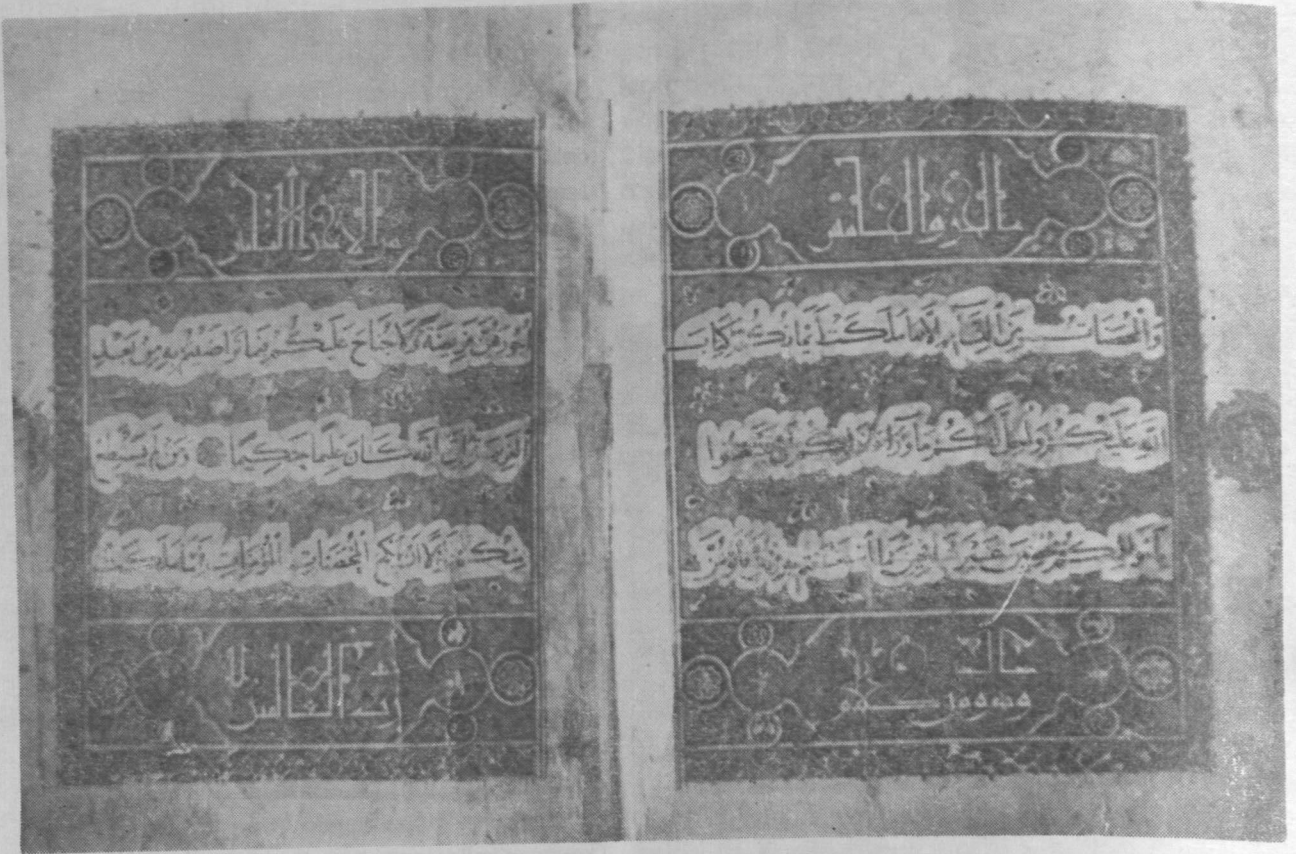 الجزو الخامس
وَالْمُحْصَنَاتُ مِنَ النِّسَاءِ إِلَّا مَا مَلَكَتْ أَيْمَانُكُمْ كِتَابَ
اللَّهِ عَلَيْكُمْ وَأُحِلَّ لَكُمْ مَا وَرَاءَ ذَلِكُمْ أَنْ تَبْتَغُوا
بِأَمْوَالِكُمْ مُحْصِنِينَ غَيْرَ مُسَافِحِينَ فَمَا اسْتَمْتَعْتُمْ بِهِ مِنْهُنَّ فَآتُوهُنَّ
من الاجزا الثلثين
أُجُورَهُنَّ فَرِيضَةً وَلَا جُنَاحَ عَلَيْكُمْ فِيمَا تَرَاضَيْتُمْ بِهِ مِنْ بَعْدِ
الْفَرِيضَةِ إِنَّ اللَّهَ كَانَ عَلِيمًا حَكِيمًا وَمَنْ لَمْ يَسْتَطِعْ
مِنْكُمْ طَوْلًا أَنْ يَنْكِحَ الْمُحْصَنَاتِ الْمُؤْمِنَاتِ فَمِنْ مَا مَلَكَتْ
رب العالمين